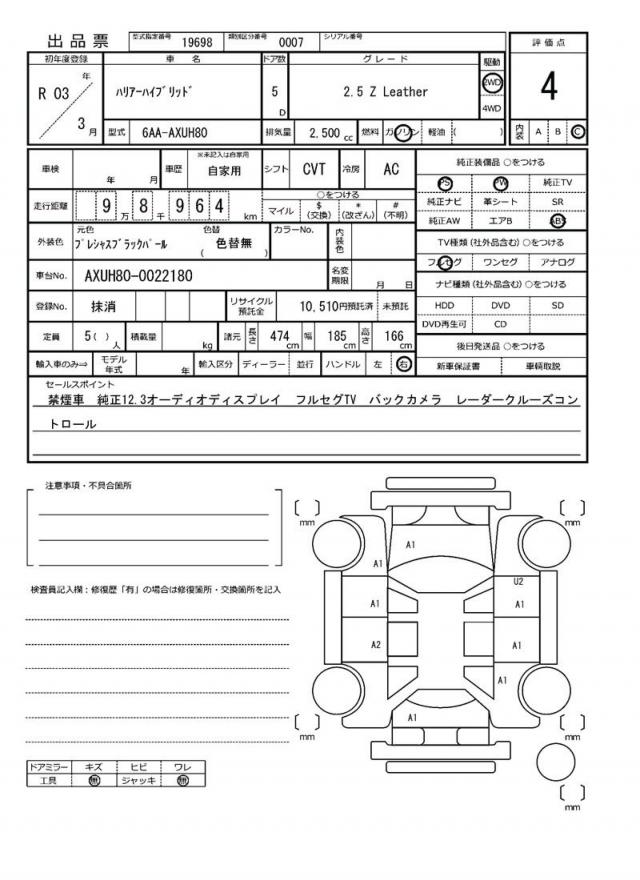 出品票 型式指定番号 19698 類別区分番号 0007 シリアル番号
初年度登録 車名 ドア数 グレード 駆動 評価点
R 03 年 3 月 ハリアーハイブリッド 5 D 2.5 Z Leather 2WD 4WD 4
型式 6AA-AXUH80 排気量 2,500 cc 燃料 ガソリン 軽油 ( ) 内装 A B C
車検 年 月 車歴 ※未記入は自家用 自家用 シフト CVT 冷房 AC
走行距離 9 万 8 千 9 6 4 km ○をつける マイル $ (交換) * (改ざん) # (不明)
外装色 元色 プレシャスブラックパール 色替 ( 色替無 ) カラーNo. 内装色
車台No. AXUH80-0022180 名変期限 月 日
登録No. 抹消 リサイクル預託金 10,510円預託済 未預託
定員 5 ( ) 人 積載量 kg 諸元 長さ 474 cm 幅 185 cm 高さ 166 cm
輸入車のみ⇒ モデル年式 年 輸入区分 ディーラー 並行 ハンドル 左 右
純正装備品 ○をつける
PS PW 純正TV
純正ナビ 革シート SR
純正AW エアB ABS
TV種類 (社外品含む) ○をつける
フルセグ ワンセグ アナログ
ナビ種類 (社外品含む) ○をつける
HDD DVD SD
DVD再生可 CD
後日発送品 ○をつける
新車保証書 車輌取説
セールスポイント
禁煙車 純正12.3オーディオディスプレイ フルセグTV バックカメラ レーダークルーズコン
トロール
注意事項・不具合箇所
検査員記入欄：修復歴「有」の場合は修復箇所・交換箇所を記入
ドアミラー キズ ヒビ ワレ
工具 無 ジャッキ 無
[ ] mm [ ] mm
A1
A1
U2
A1 A1
A2
A1
A1
[ ] mm [ ] mm
[ ] mm